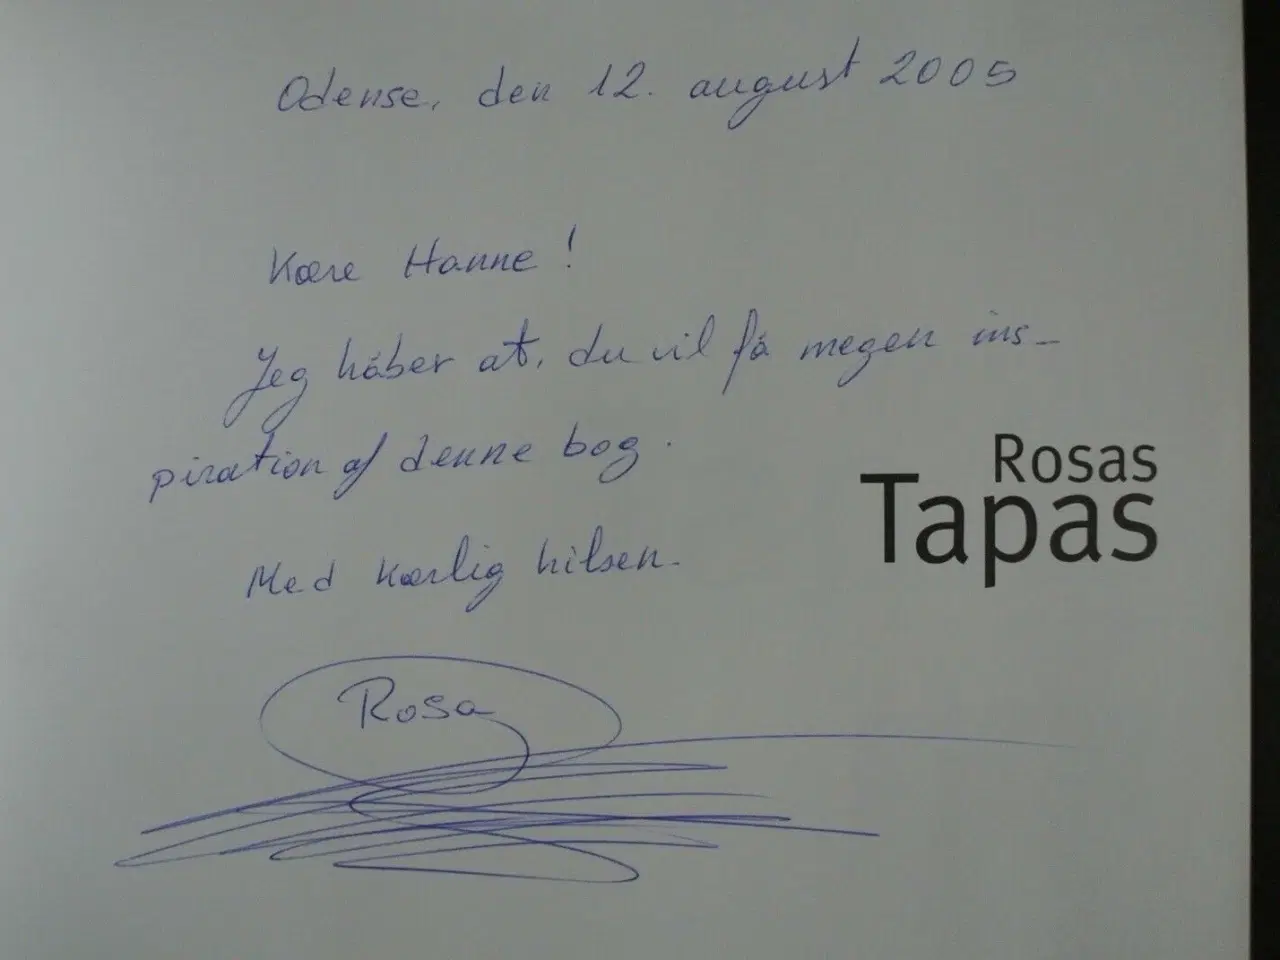 Odense, den 12. august 2005
Kære Hanne!
Jeg håber at, du vil få megen ins-
piration af denne bog.
Rosas
Tapas
Med kærlig hilsen.
Rosa